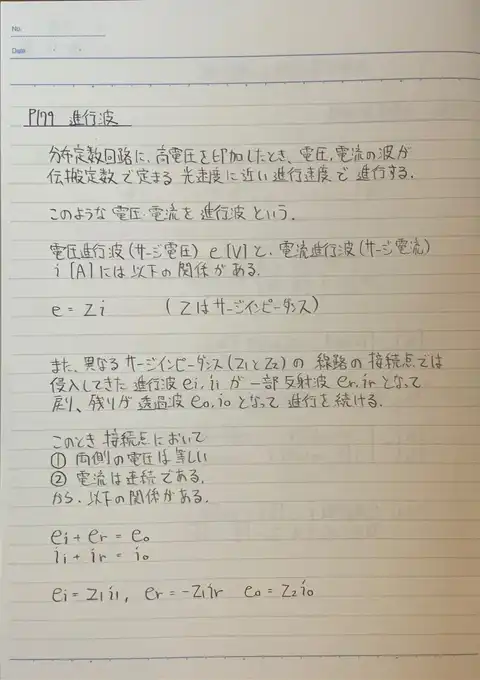 No.
Date
P179 進行波
分布定数回路に、高電圧を印加したとき、電圧,電流の波が
伝搬定数で定まる 光速度に近い進行速度で 進行する.
このような 電圧・電流を 進行波 という.
電圧進行波(サージ電圧) e [V]と、電流進行波(サージ電流)
i [A]には以下の関係がある.
e = Zi (Zはサージインピーダンス)
また、異なるサージインピーダンス(Z1とZ2)の 線路の接続点では
侵入してきた 進行波 ei, ii が一部反射波 er, ir となって
戻り、残りが透過波 eo, io となって 進行を続ける.
このとき 接続点において
① 両側の電圧は等しい
② 電流は連続である.
から、以下の関係がある.
ei + er = eo
ii + ir = io
ei = Z1ii, er = -Z1ir eo = Z2io